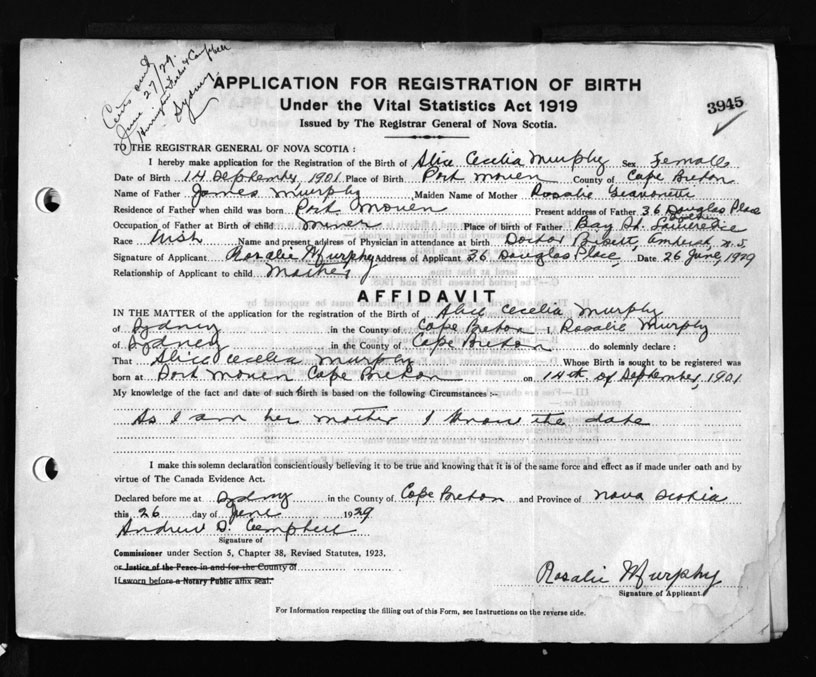 Certs and
June 27/29.
Harrington Forbes & Campbell
Sydney
APPLICATION FOR REGISTRATION OF BIRTH
Under the Vital Statistics Act 1919
3945
Issued by The Registrar General of Nova Scotia.
TO THE REGISTRAR GENERAL OF NOVA SCOTIA :
I hereby make application for the Registration of the Birth of Alice Cecilia Murphy Sex Female
Date of Birth 14 September, 1901 Place of Birth Port Morien County of Cape Breton
Name of Father James Murphy Maiden Name of Mother Rosalie
Residence of Father when child was born Port Morien Present address of Father 36 Douglas Place
Occupation of Father at Birth of child Miner Place of birth of Father Bay St. Lawrence
Race Irish Name and present address of Physician in attendance at birth Doctor Amherst, N.S.
Signature of Applicant Rosalie Murphy Address of Applicant 36 Douglas Place, Date 26 June, 1929
Relationship of Applicant to child Mother
AFFIDAVIT
IN THE MATTER of the application for the registration of the Birth of Alice Cecelia Murphy
of Sydney in the County of Cape Breton I, Rosalie Murphy
of Sydney in the County of Cape Breton do solemnly declare :
That Alice Cecelia Murphy Whose Birth is sought to be registered was
born at Port Morien Cape Breton on 14th of September, 1901
My knowledge of the fact and date of such Birth is based on the following Circumstances :-
As I am her mother I know the date
I make this solemn declaration conscientiously believing it to be true and knowing that it is of the same force and effect as if made under oath and by
virtue of The Canada Evidence Act.
Declared before me at Sydney in the County of Cape Breton and Province of Nova Scotia
this 26 day of June 1929
Andrew D. Campbell
Signature of
Commissioner under Section 5, Chapter 38, Revised Statutes, 1923.
or Justice of the Peace in and for the County of
If sworn before a Notary Public affix seal.
Rosalie Murphy
Signature of Applicant.
For Information respecting the filling out of this Form, see Instructions on the reverse side.